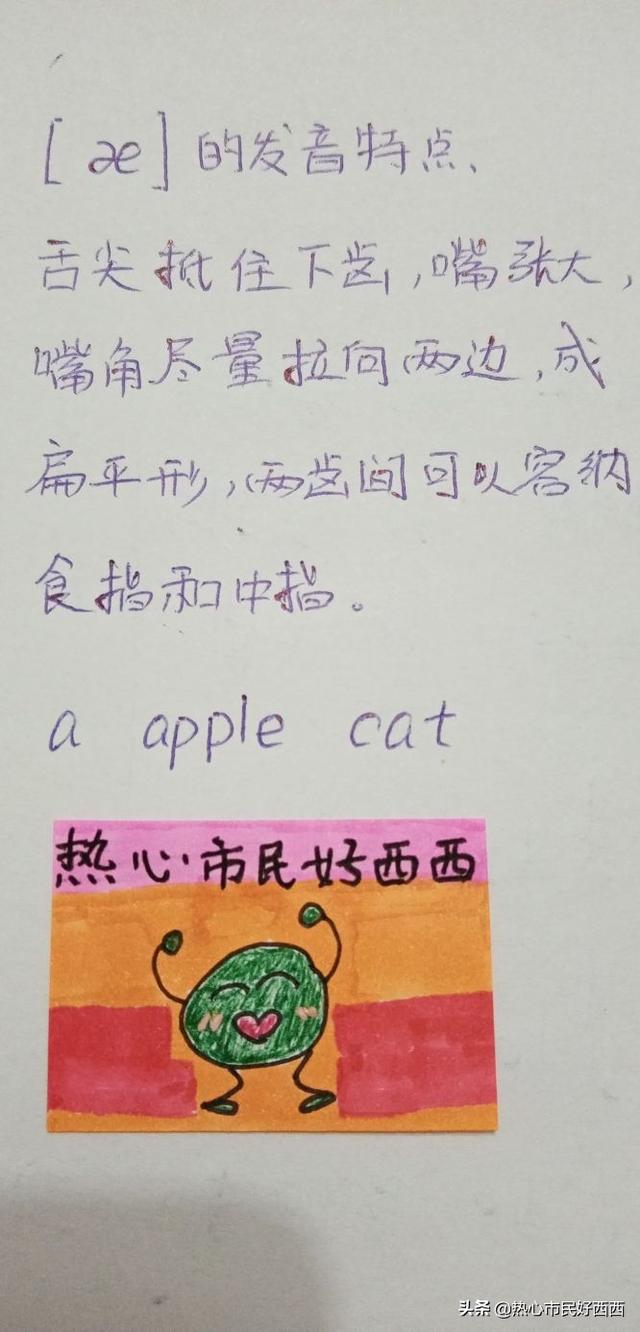 [æ]的发音特点、
舌尖抵住下齿,嘴张大,
嘴角尽量拉向两边,成
扁平形,两齿间可以容纳
食指和中指。
a apple cat
热心市民好西西
头条 @热心市民好西西